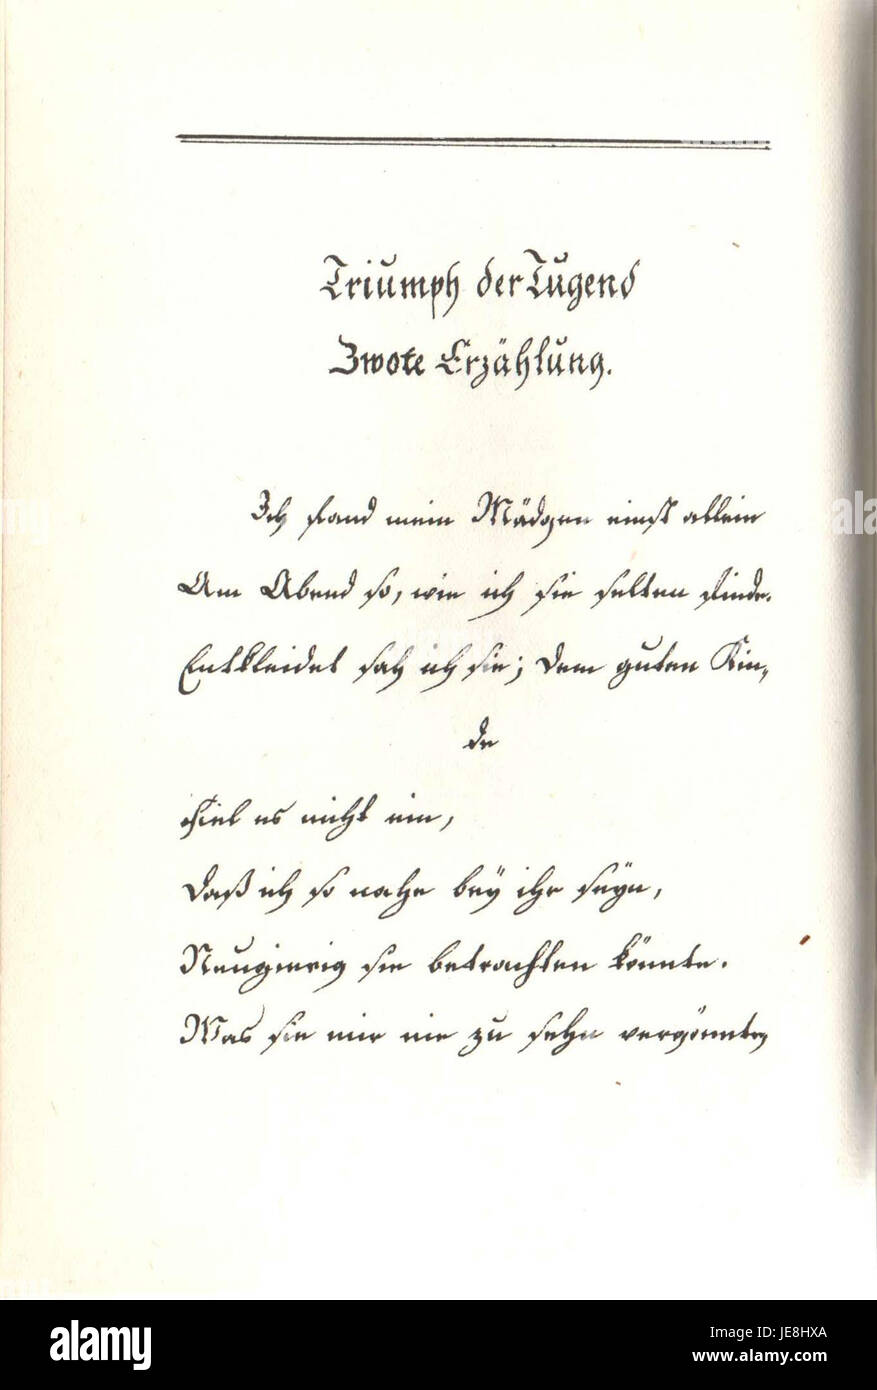 Triumph der Tugend
Zwote Erzählung.
Ich fand mein Mädgen einst allein
Am Abend so, wie ich sie selten finde.
Entkleidet sah ich sie; dem guten Kin-
de
Fiel es nicht ein,
Daß ich so nahe bey ihr seyn,
Neugierig sie betrachten könnte.
Was sie mir nie zu sehn vergönnte,
alamy
JE8HXA
www.alamy.com